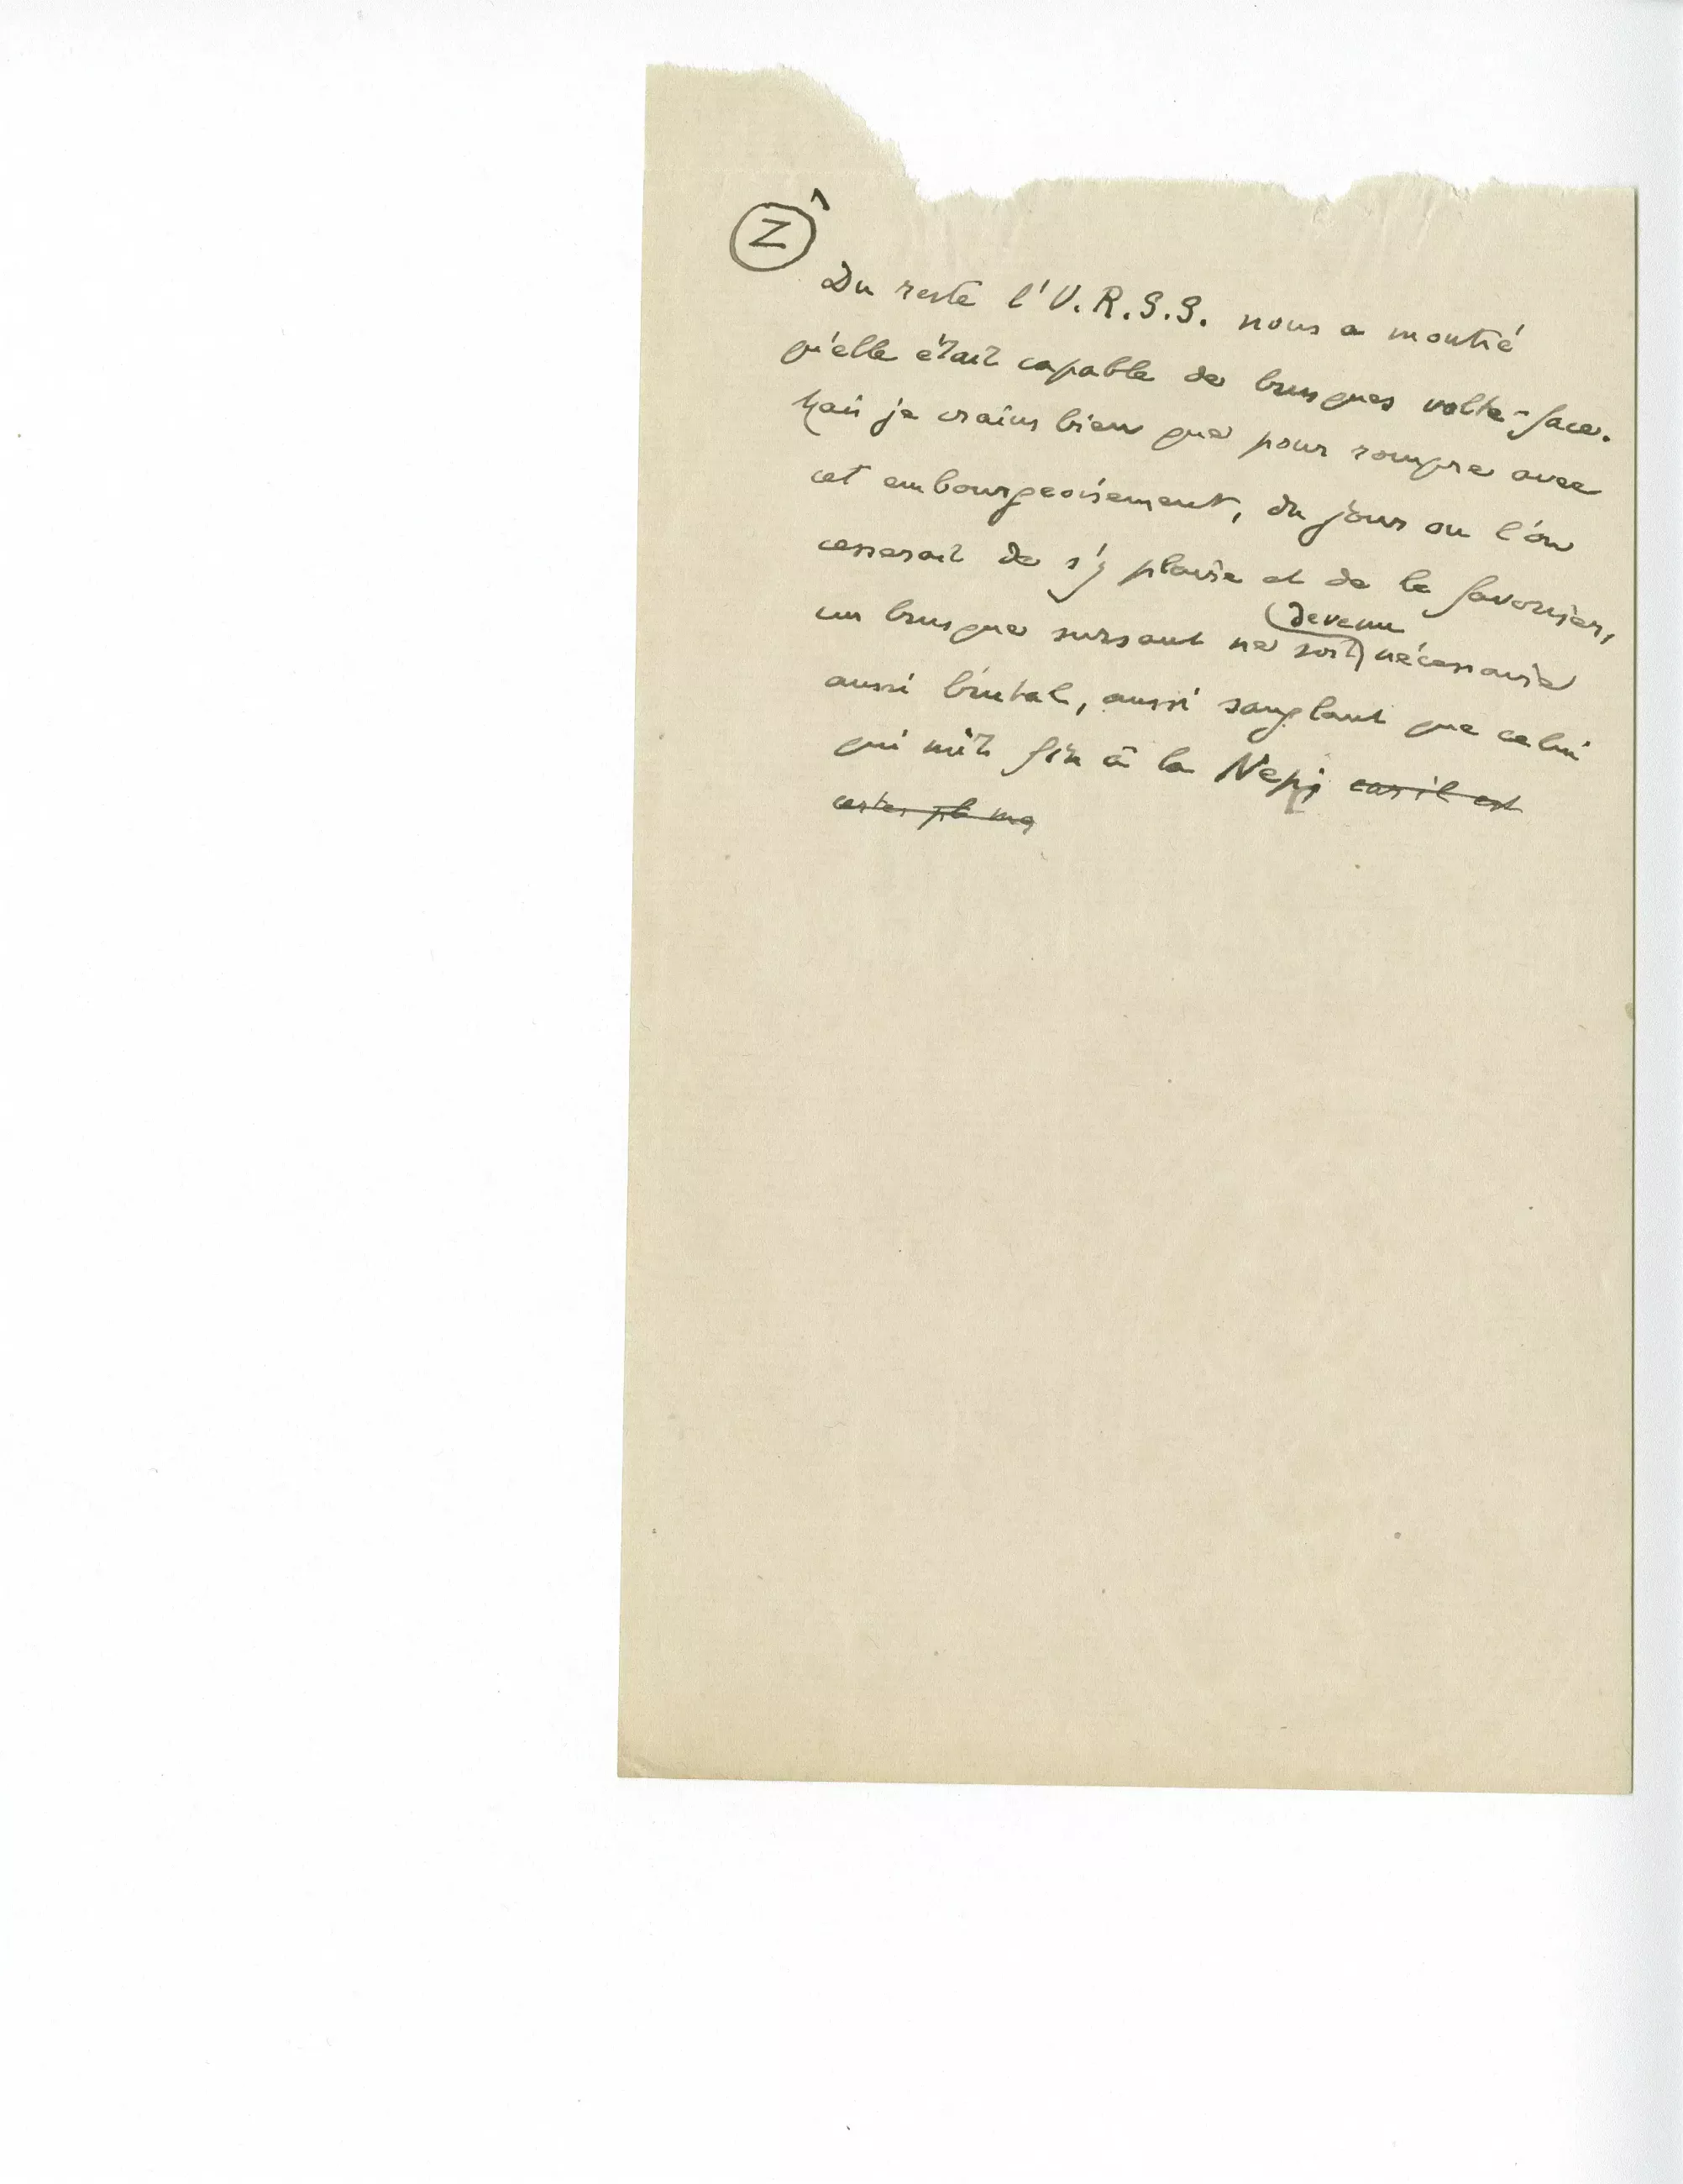 Z
Du reste l'U.R.S.S. nous a montré
qu'elle était capable de brusques volte-face.
Mais je crains bien que pour rompre avec
cet embourgeoisement, du jour ou l'on
cesserait de s'y plaire et de le favoriser,
devenu
un brusque sursaut ne soit nécessaire
aussi brutal, aussi sanglant que celui
qui mît fin à la Nep; car il est